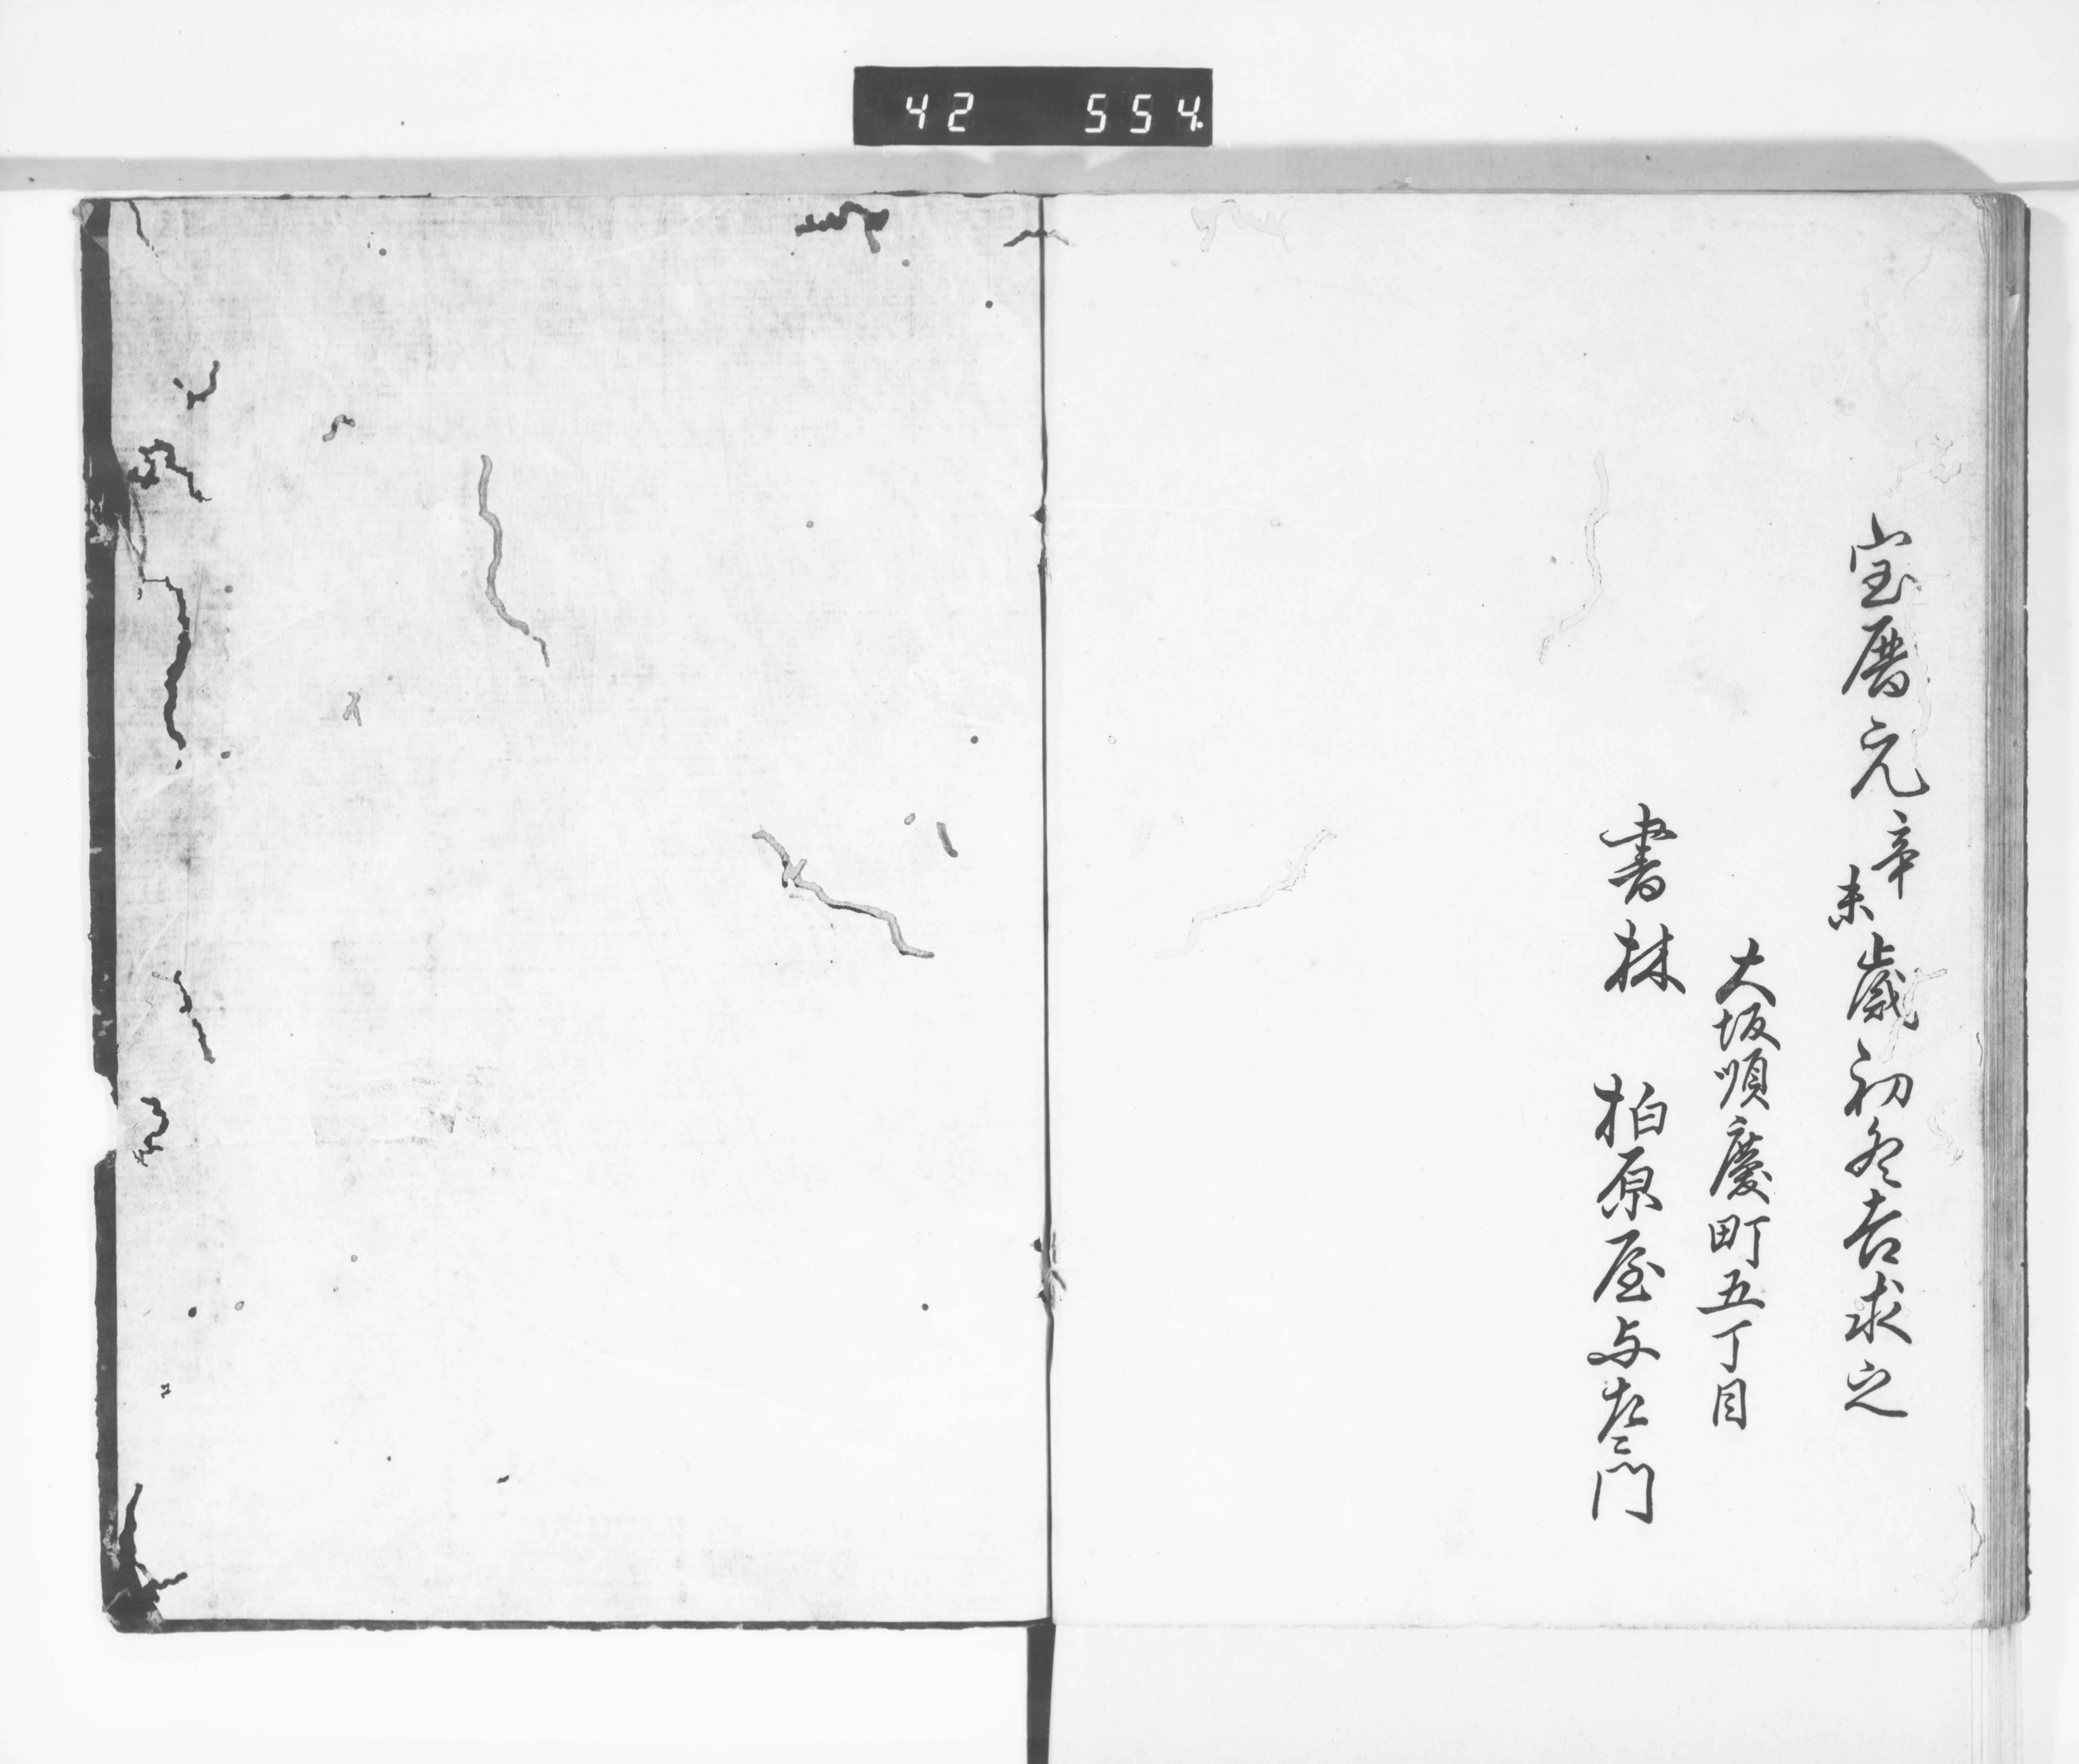 42 554
宝暦元辛未歳初冬吉求之
大坂順慶町五丁目
書林 柏原屋与左衛門